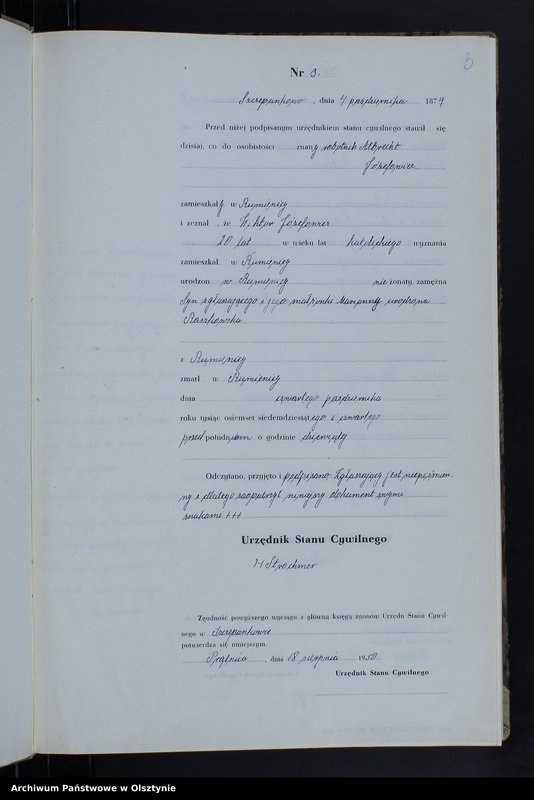 3
Nr 3.
Szczepankowo, dnia 4 października 1874
Przed niżej podpisanym urzędnikiem stanu cywilnego stawił się
dzisiaj, co do osobistości znany robotnik Albrecht
Józefowicz
zamieszkały w Rumienicy
i zeznał, że Wiktor Józefowicz
20 lat w wieku lat katolickiego wyznania
zamieszkał w Rumienicy
urodzon w Rumienicy nie żonaty, zamężna
Syn zgłaszającego i jego małżonki Marianny urodzona
Raszkowska
z Rumienicy
zmarł w Rumienicy
dnia czwartego października
roku tysiąc osiemset siedemdziesiątego i czwartego
przed południem o godzinie dziewiątej
Odczytano, przyjęto i podpisano Zgłaszający jest niepiśmien-
ny i dlatego zaopatrzył niniejszy dokument swymi
znakami +++
Urzędnik Stanu Cywilnego
Zgodność powyższego wyciągu z główną księgą zgonów Urzędu Stanu Cywil-
nego w Szczepankowie
potwierdza się niniejszym.
Prątnica, dnia 18 sierpnia 1950
Urzędnik Stanu Cywilnego
Archiwum Państwowe w Olsztynie